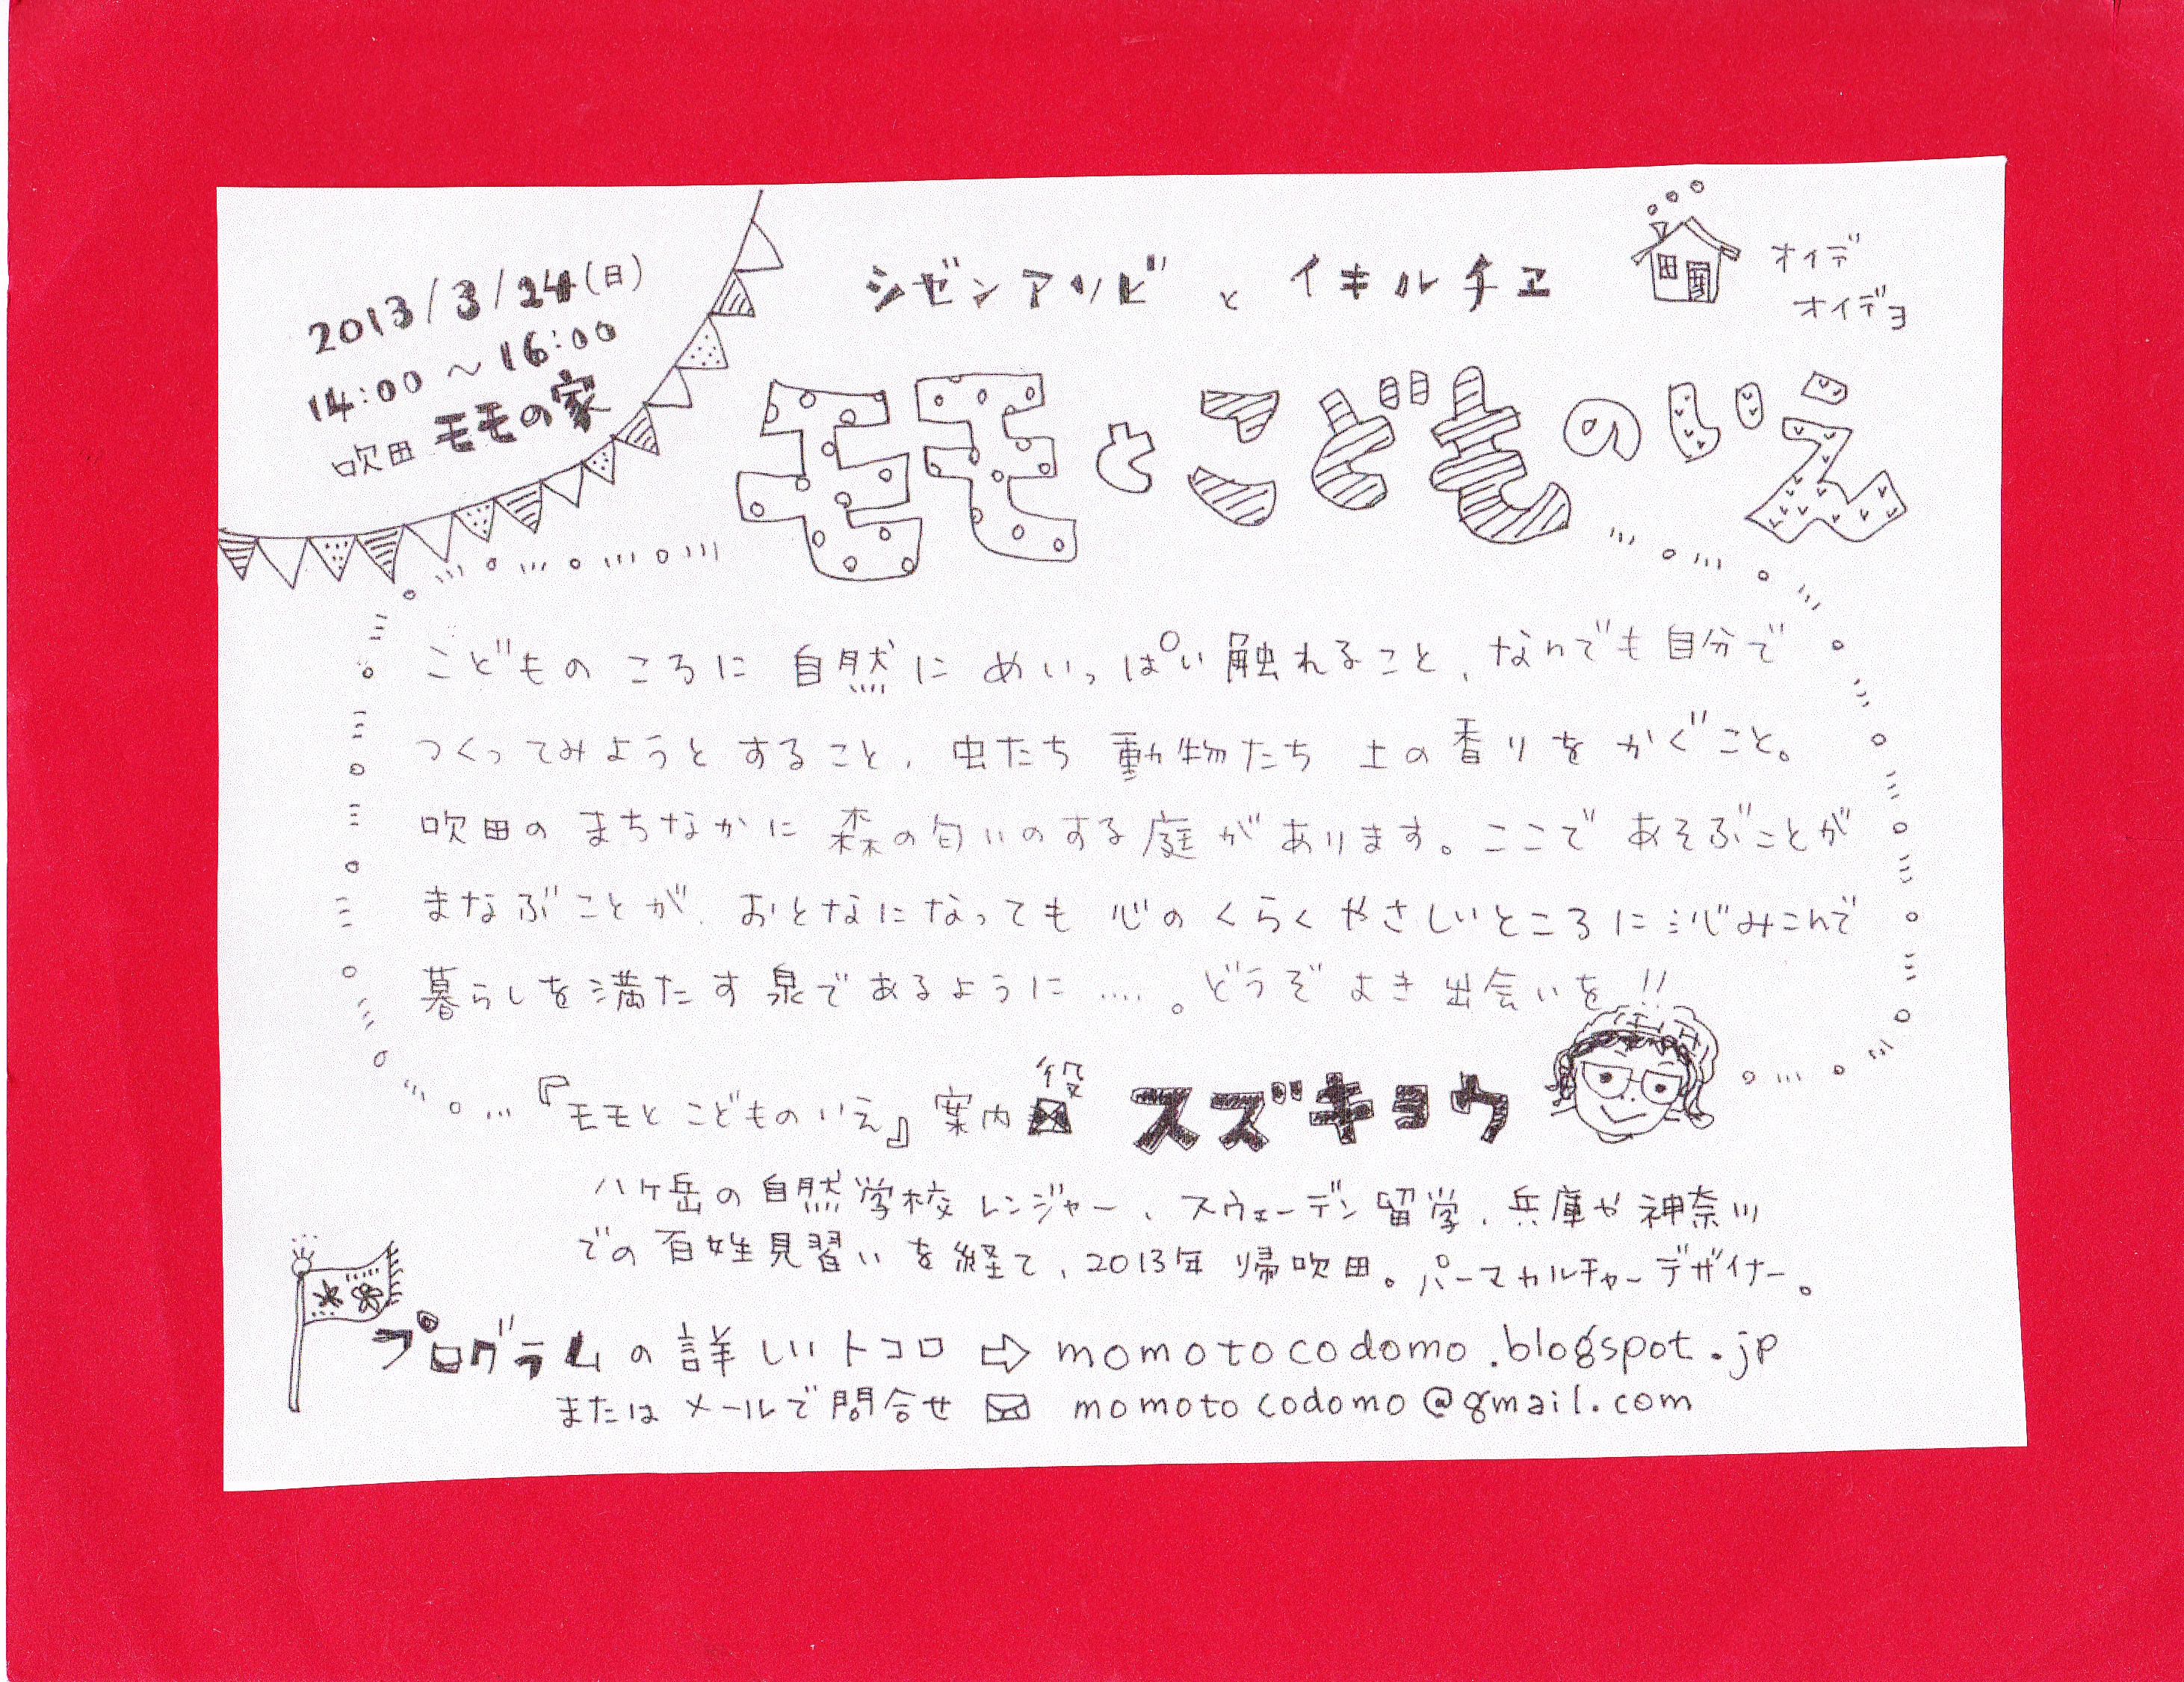 2013/3/24(日)
14:00〜16:00
吹田 モモの家
シゼンアソビ と イキルチエ
オイデ
オイデヨ
モモとこどものいえ
こどもの ころに 自然に めいっぱい触れること、なんでも自分で
つくってみようと すること、虫たち 動物たち 土の香りを かぐこと。
吹田の まちなかに 森の匂いのする庭があります。ここで あそぶことが
まなぶことが、おとなになっても 心の くらく やさしいところに 沁みこんで
暮らしを満たす泉であるように....。どうぞ よき 出会いを!!
『モモと こどものいえ』案内役 スズキヨウ
八ヶ岳の自然学校レンジャー、スウェーデン留学、兵庫や神奈川
での百姓見習いを経て、2013年 帰吹田。パーマカルチャーデザイナー。
プログラムの詳しいトコロ ⇨ momotocodomo.blogspot.jp
または メールで問合せ ✉ momotocodomo@gmail.com